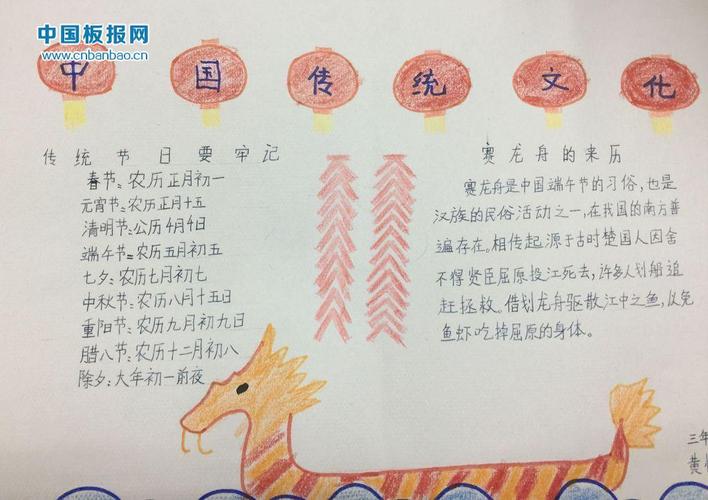 中国板报网
www.cnbanbao.cn
中国传统文化
传统节日要牢记
春节:农历正月初一
元宵节:农历正月十五
清明节:公历4月4日
端午节:农历五月初五
七夕:农历七月初七
中秋节:农历八月十五日
重阳节:农历九月初九日
腊八节:农历十二月初八
除夕:大年初一前夜
赛龙舟的来历
赛龙舟是中国端午节的习俗,也是
汉族的民俗活动之一,在我国的南方普
遍存在。相传起源于古时楚国人因舍
不得贤臣屈原投江死去,许多人划船追
赶拯救。借划龙舟驱散江中之鱼,以免
鱼虾吃掉屈原的身体。
三年
黄